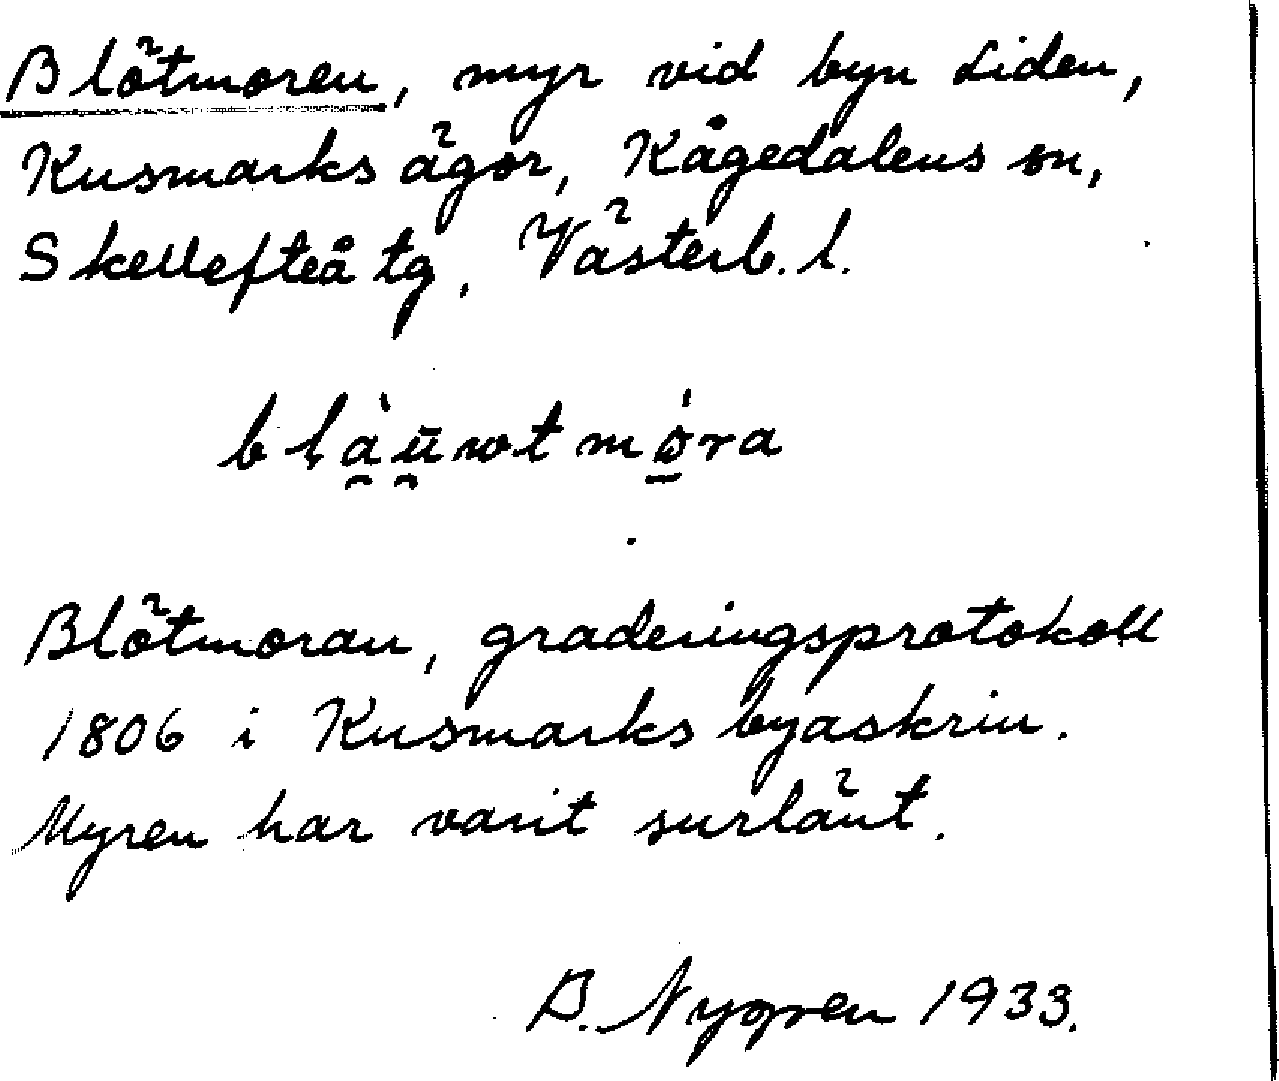 Blötmoren, myr vid byn Liden,
Kusmarks ägor, Kågedalens sn,
Skellefteå tg, Västerb. l.
bḷà̯ṻ̯wtmǫ́ra
Blötmoran, graderingsprotokoll
1806 i Kusmarks byaskrin.
Myren har varit surlänt.
B. Nygren 1933.